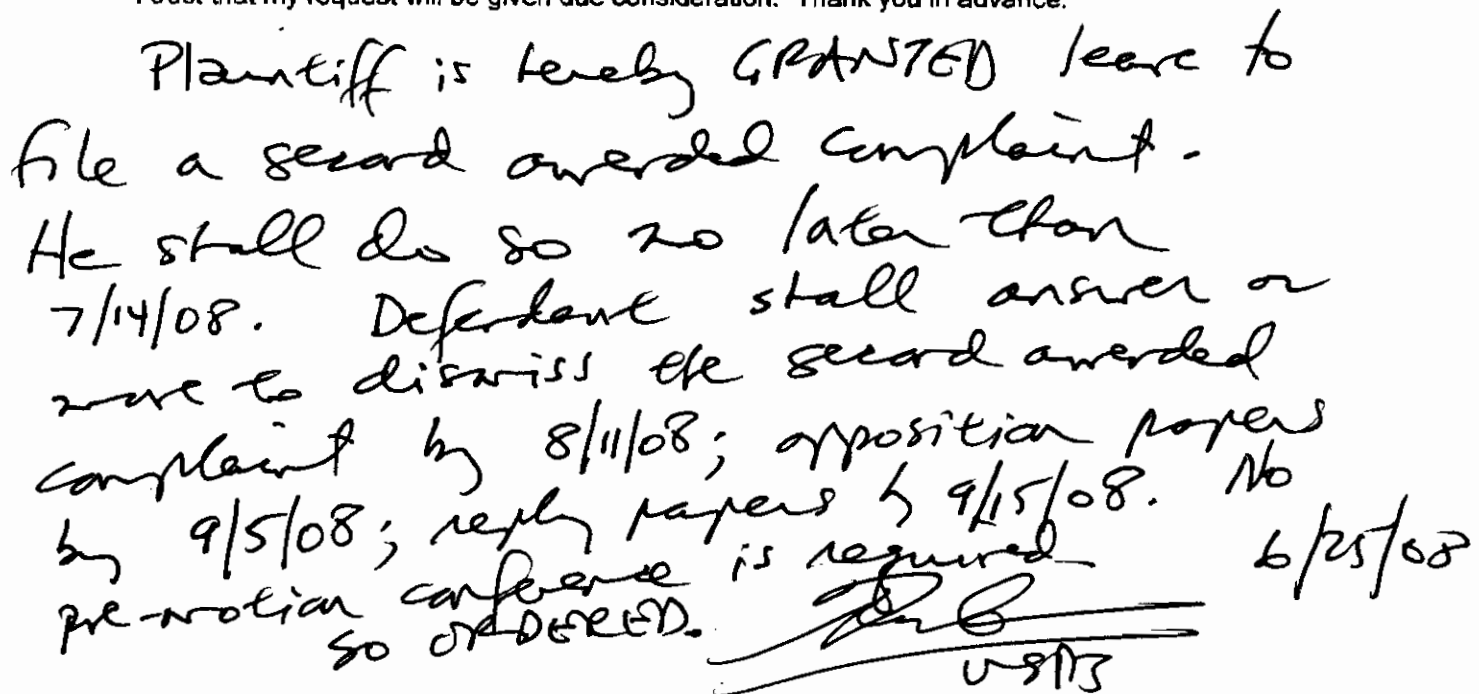 I trust that my request will be given due consideration. Thank you in advance.
Plaintiff is hereby GRANTED leave to
file a second amended complaint.
He shall do so no later than
7/14/08. Defendant shall answer or
move to dismiss the second amended
complaint by 8/11/08; opposition papers
by 9/5/08; reply papers by 9/15/08. No
pre-motion conference is required.
SO ORDERED.
6/25/08
USDJ